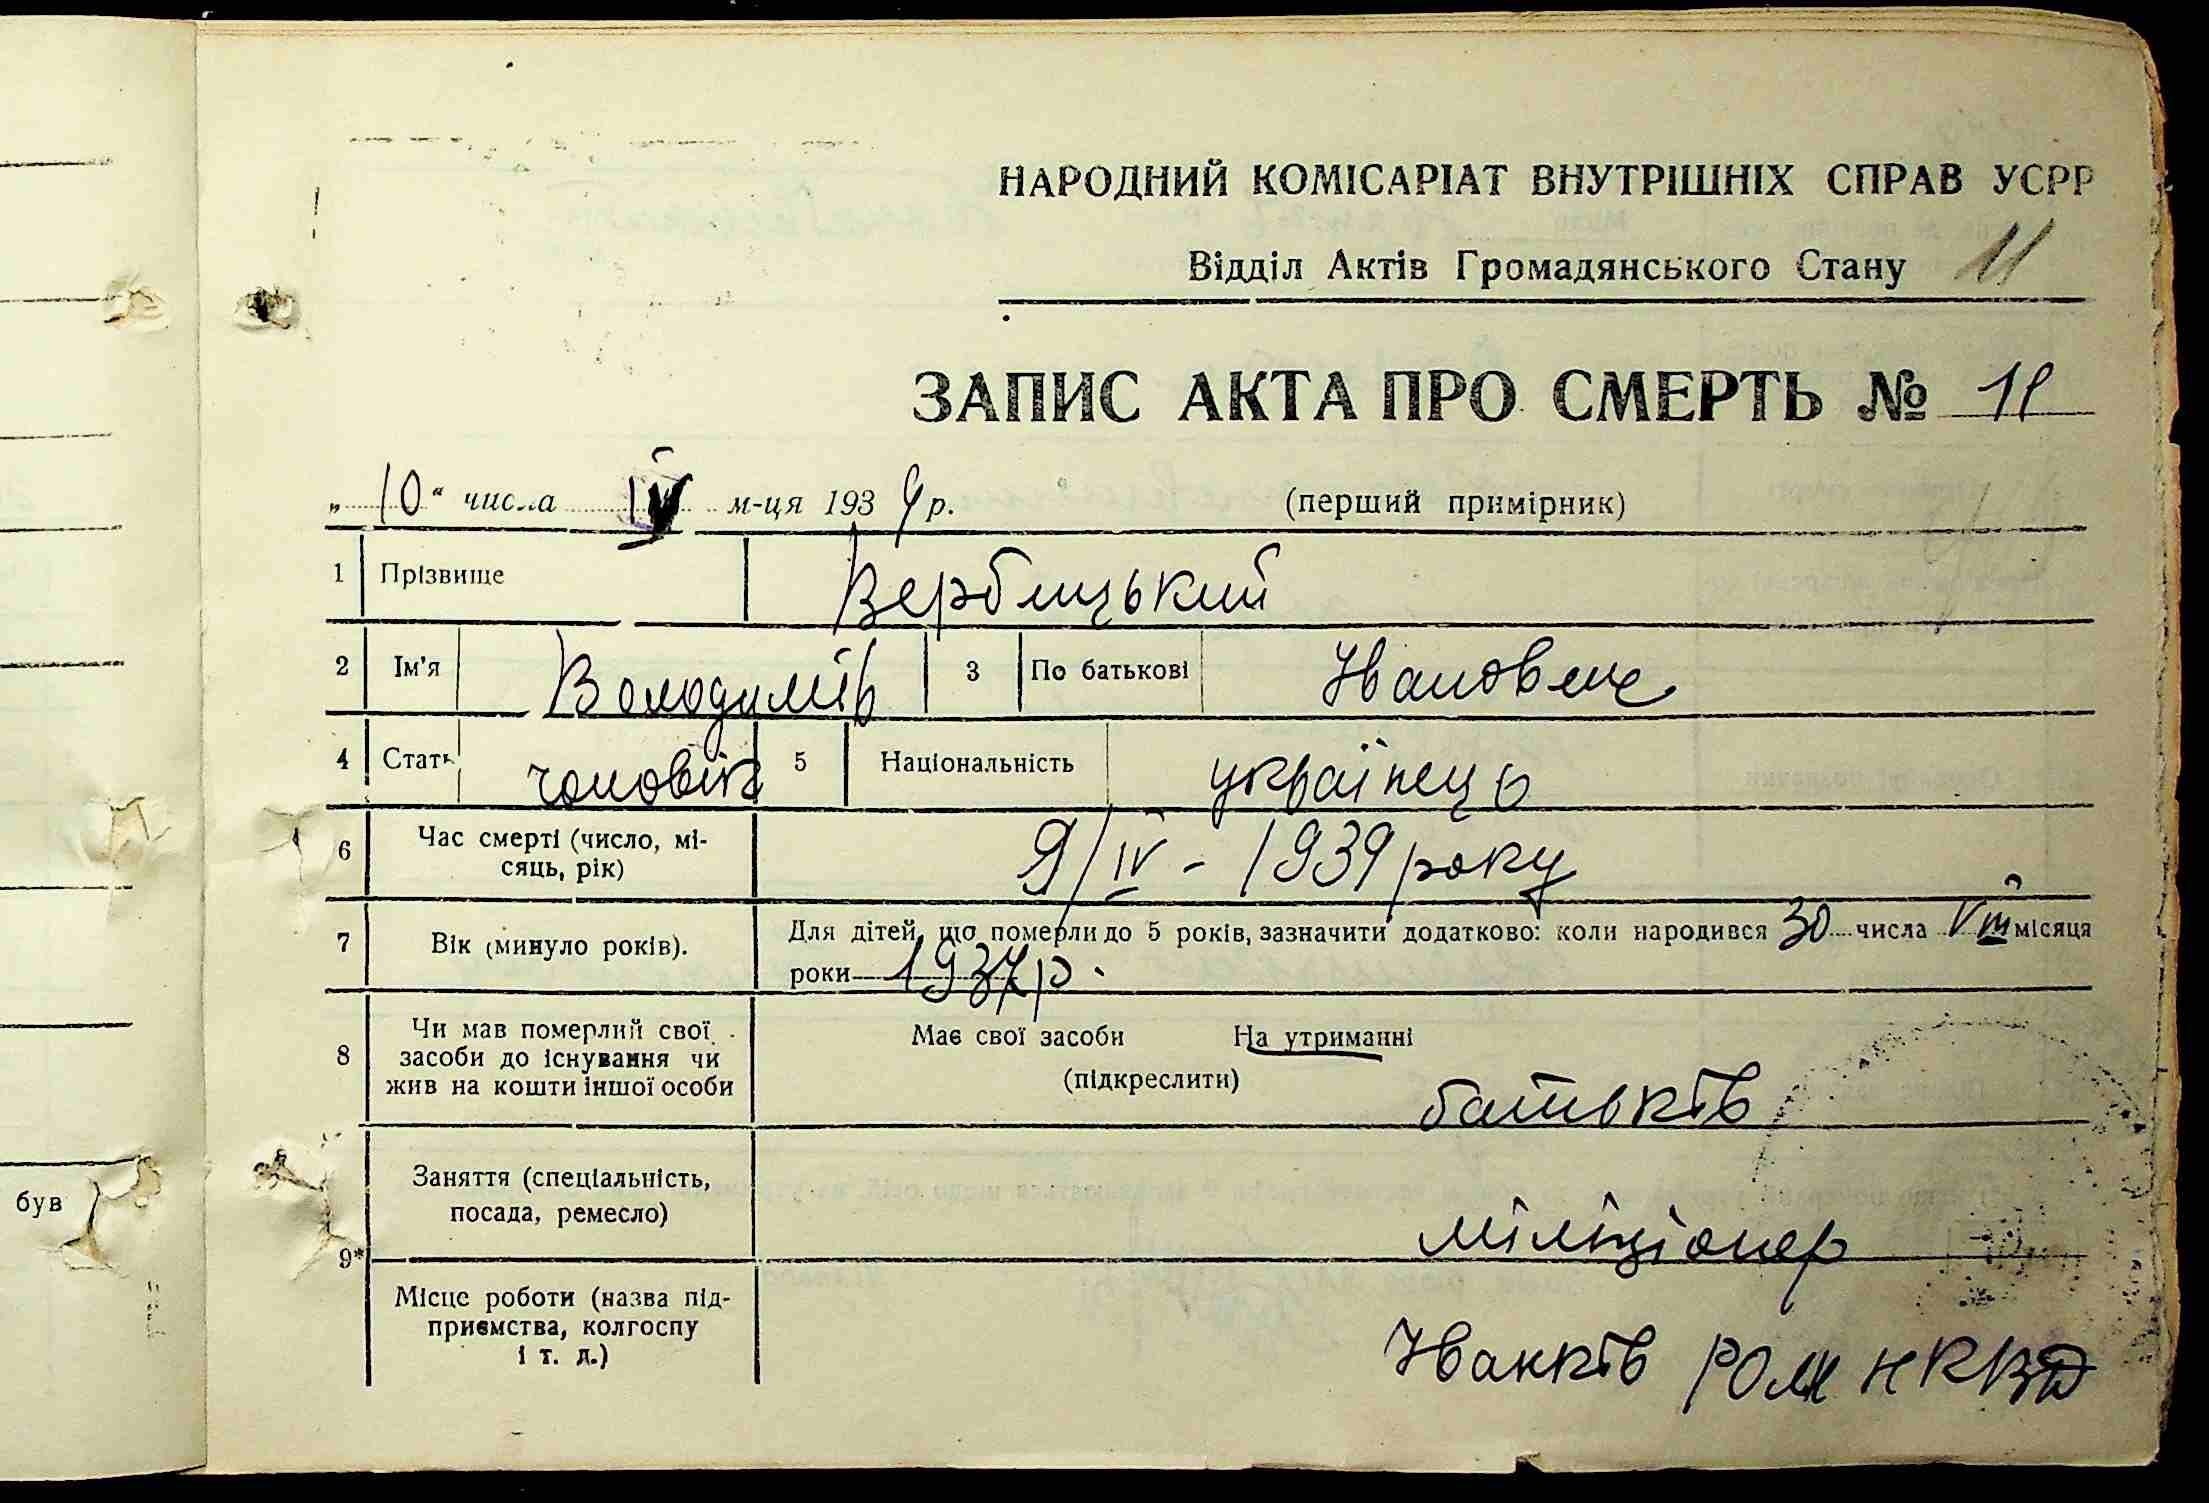 НАРОДНИЙ КОМІСАРІАТ ВНУТРІШНІХ СПРАВ УСРР
Відділ Актів Громадянського Стану 11
ЗАПИС АКТА ПРО СМЕРТЬ № 11
„ 10 “ числа IV м-ця 1939 р. (перший примірник)
1 Прізвище Вербицький
2 Ім'я Володимір 3 По батькові Іванович
4 Стать чоловік 5 Національність українець
6 Час смерті (число, мі-
сяць, рік) 9/IV - 1939 року
7 Вік (минуло років). Для дітей, що померли до 5 років, зазначити додатково: коли народився 30 числа VIII місяця
роки 1937 р.
8 Чи мав померлий свої
засоби до існування чи
жив на кошти іншої особи
Має свої засоби На утриманні
(підкреслити)
батьків
9* Заняття (спеціальність,
посада, ремесло)
міліціонер
Місце роботи (назва під-
приємства, колгоспу
і т. д.)
Іванків РОМ НКВД
був